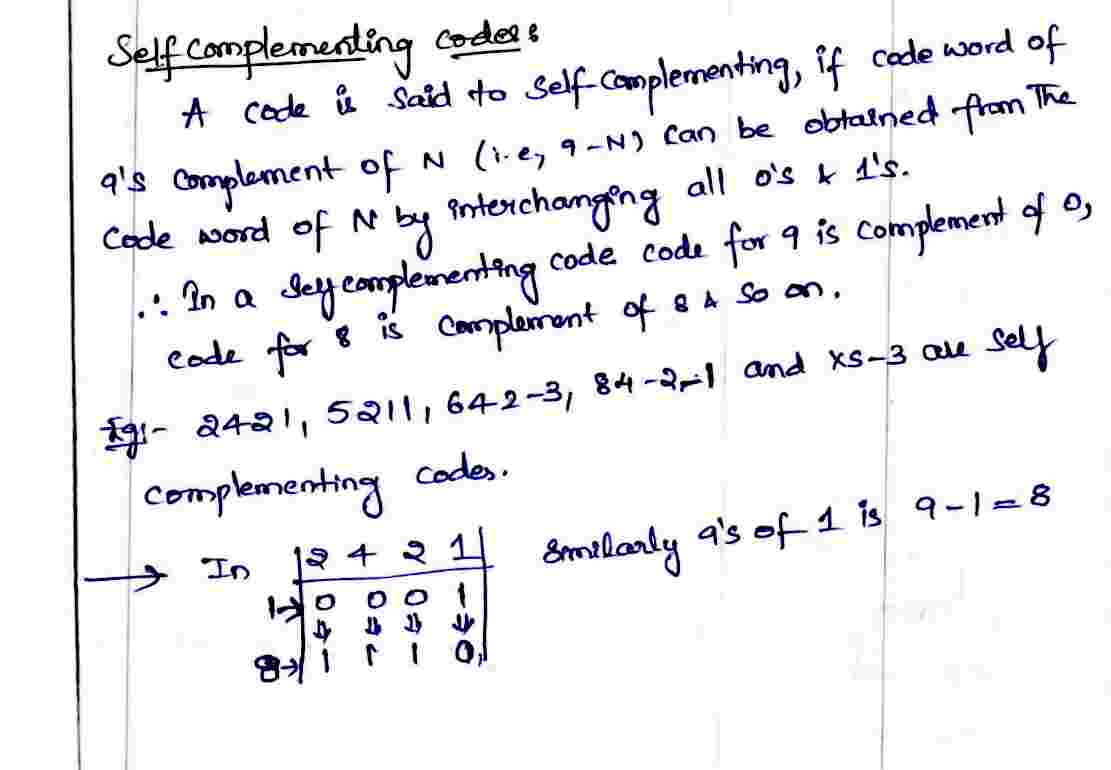 Self complementing codes:
A code is said to self-complementing, if code word of
9's complement of N (i.e, 9-N) can be obtained from The
code word of N by interchanging all 0's & 1's.
∴ In a self complementing code code for 9 is complement of 0,
code for 8 is complement of 8 & so on.
Eg:- 2421, 5211, 642-3, 84-2-1 and XS-3 are self
complementing codes.
→ In 2 4 2 1 Similarly 9's of 1 is 9-1=8
1→ 0 0 0 1
↓ ↓ ↓ ↓
8→ 1 1 1 0,